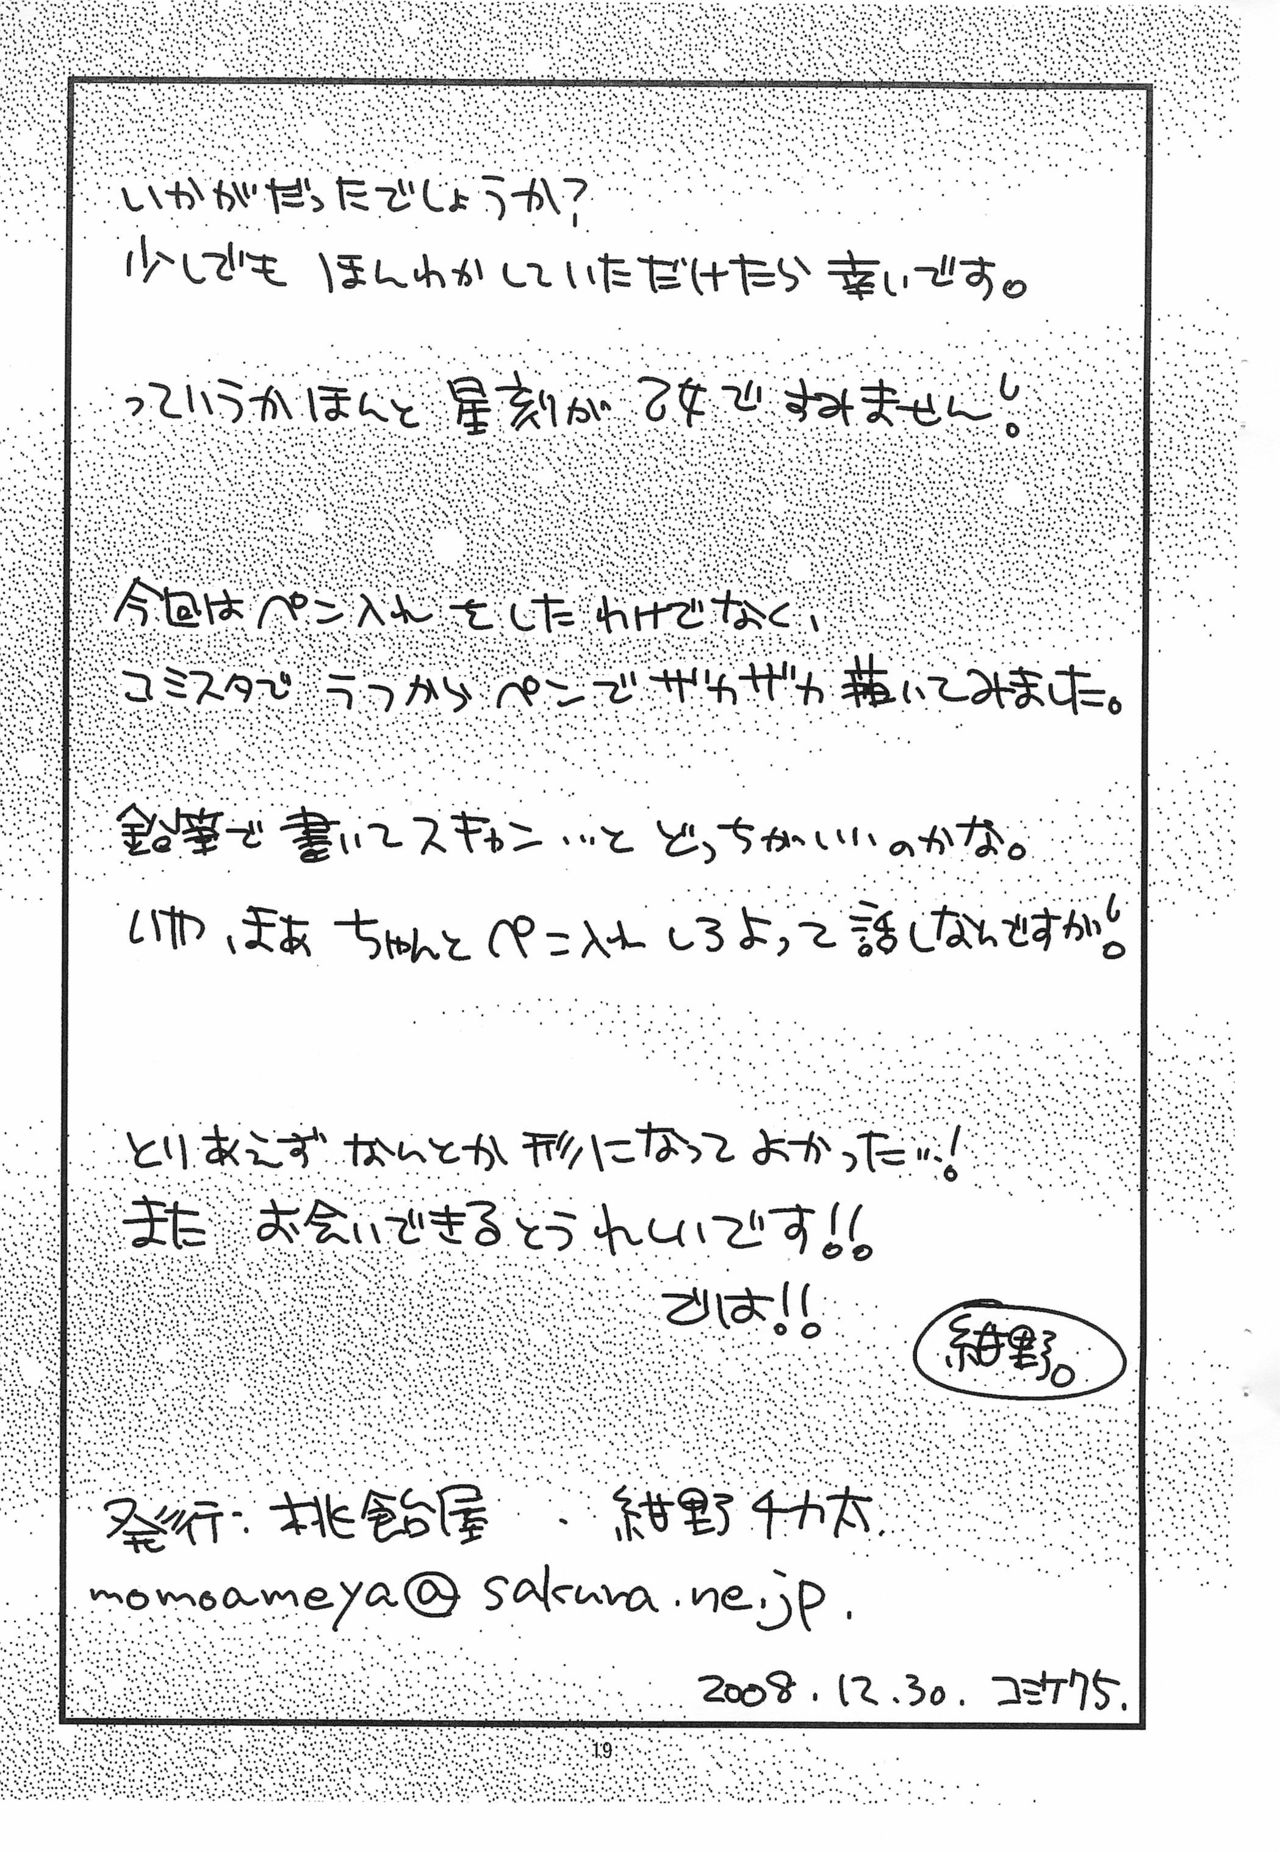 いかがだったでしょうか?
少しでも ほんわかしていただけたら 幸いです。
っていうかほんと 星刻が 乙女ですみません!
今回はペン入れをしたわけでなく、
コミスタで ラフからペンでザカザカ描いてみました。
鉛筆で書いてスキャン…と どっちがいいのかな。
いや、まあ ちゃんとペン入れしろよって話しなんですが!
とりあえず なんとか形になってよかった…!
また お会いできるとうれしいです!!
では!!
紺野。
発行:桃飴屋 . 紺野チカ太.
momoameya@sakura.ne.jp.
2008.12.30. コミケ75.
19